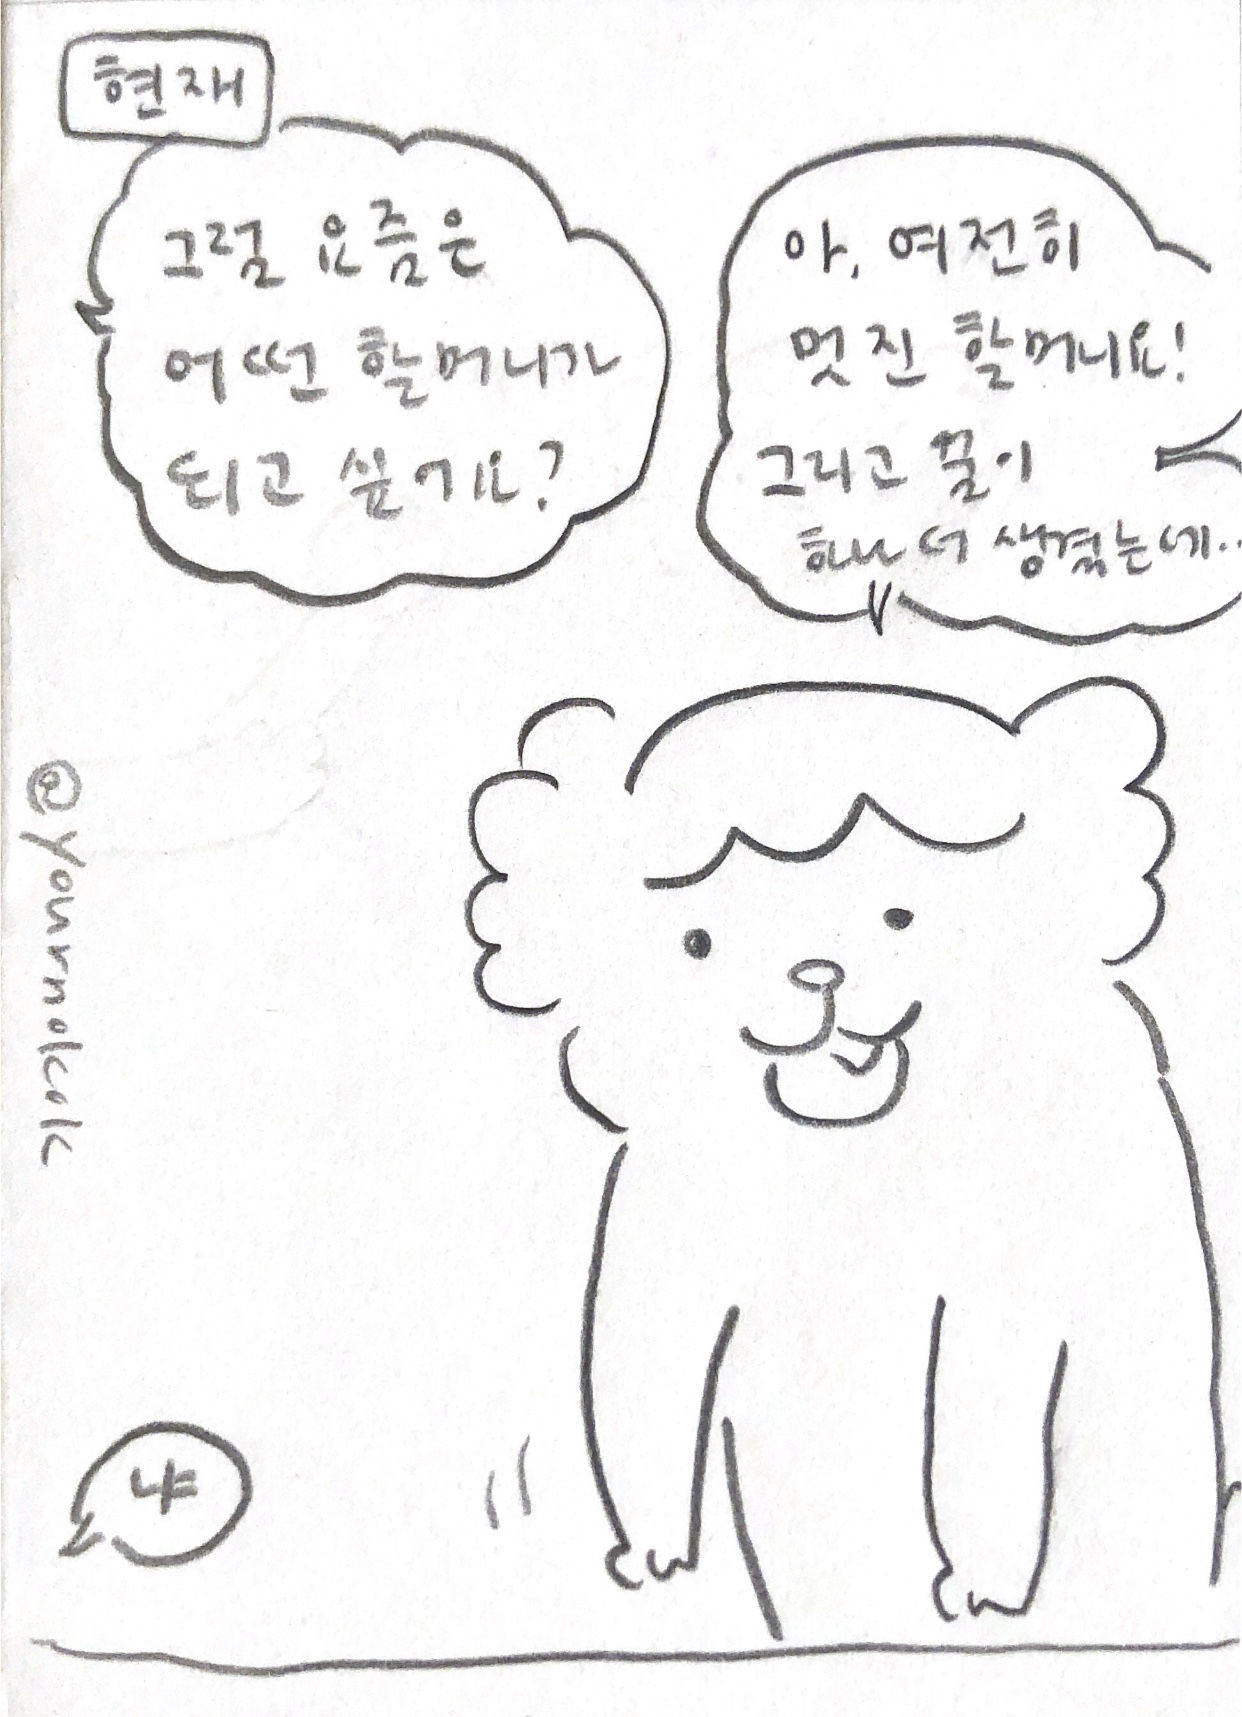 현재
그럼 요즘은
어떤 할머니가
되고 싶어요?
아, 여전히
멋진 할머니요!
그리고 꿈이
하나 더 생겼는데..
@yournokok
냐